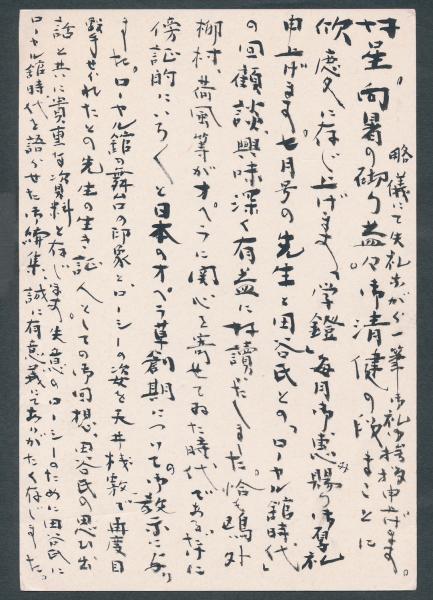 略儀にて失礼ながら一筆御礼
拝呈 向暑の砌り益々御清健の段まことに
欣慶に存じ上げます。「学鐙」毎月御恵賜のみ御厚礼
申上げます。七月号の先生と田谷氏との「ローヤル館時代」
の回顧談、興味深く有益に拝読いたしました。恰も鴎外
柳村、荷風等がオペラに関心を寄せてゐた時代であるだけに
傍証的にいろ〱と日本のオペラ草創期についての御教示に与り
ました。ローヤル館の舞台の印象と、ローシーの姿を天井桟敷で再度目
先生の生き証人としての御回想、田谷氏の思ひ出
話と共に貴重な資料と存じます。失意のローシーのために田谷氏に
ローヤル館時代を語らせた御編集、誠に有意義にてありがたく存じました。